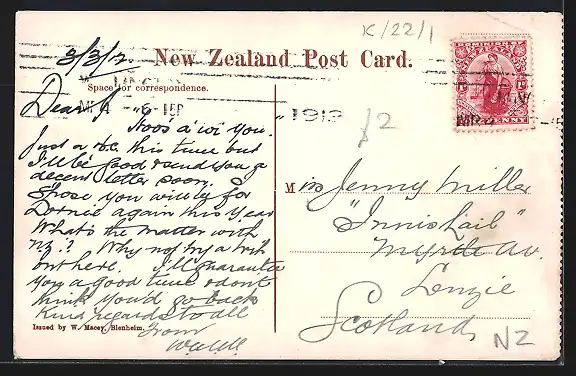 K/22/1
3/3/12
New Zealand Post Card.
Space for correspondence.
Dear J
"Hoos a' wi you."
Just a P.C. this time but
I'll be good & send you a
decent letter soon.
I 'spose you will be for
Dornie again this year
What's the matter with
N.Z.? Why not try a trip
out here. I'll guarantee
you a good time & dont
think you'd go back
Kind regards to all
From
Issued by W. Macey, Blenheim.
1912
£2
Miss Jenny Miller
"Innishail"
Myrtle Av.
Lenzie
Scotland
NZ